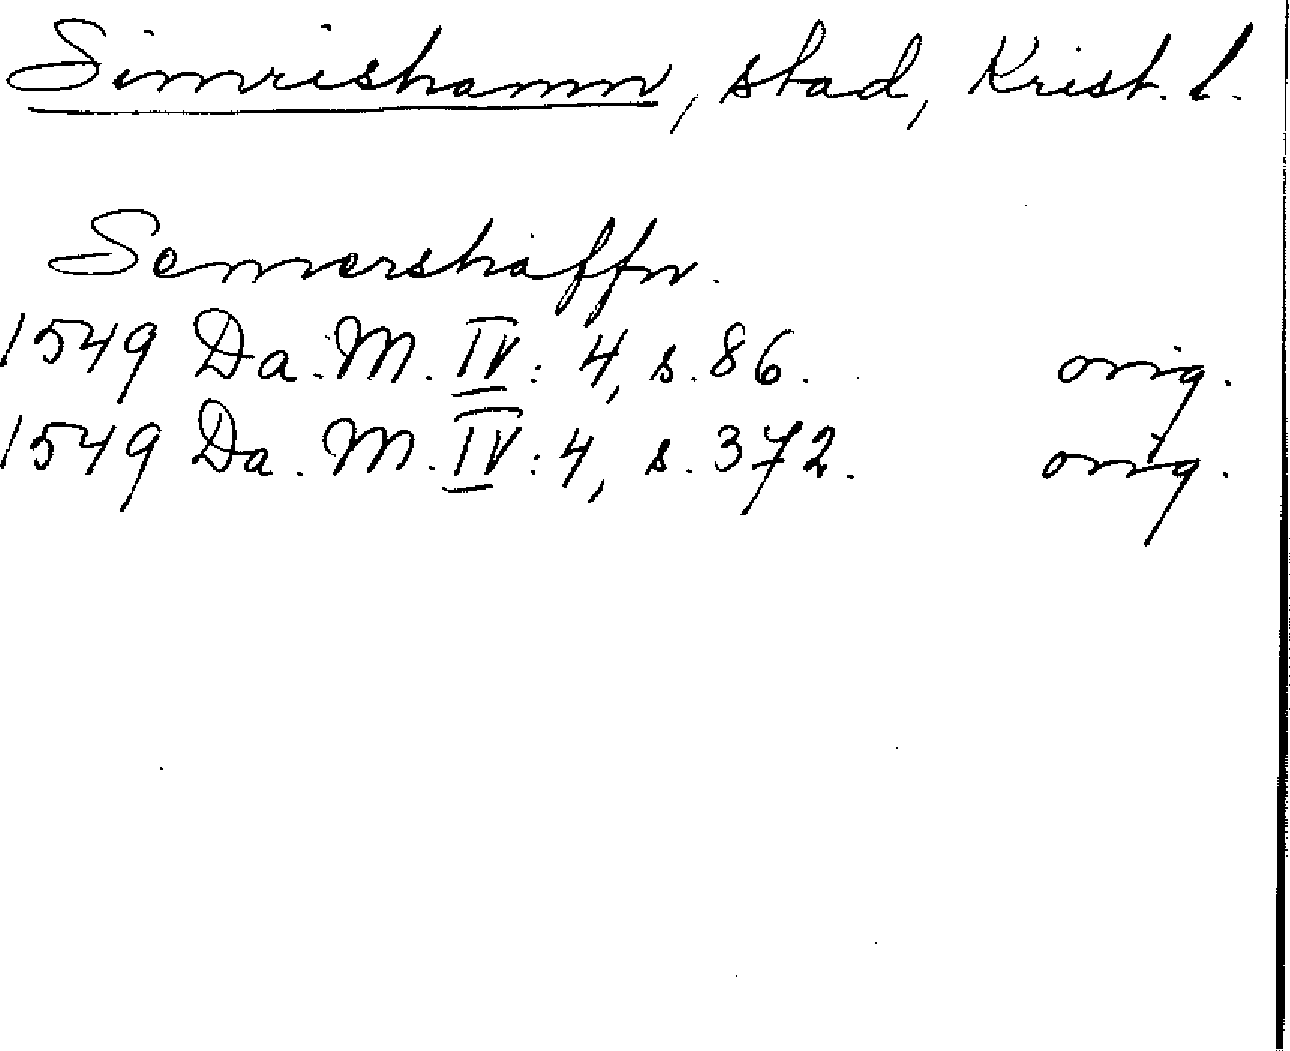 Simrishamn, stad, Krist. l.
Semershaffn.
1549 Da. M. IV: 4, s. 86. orig.
1549 Da. M. IV: 4, s. 372. orig.